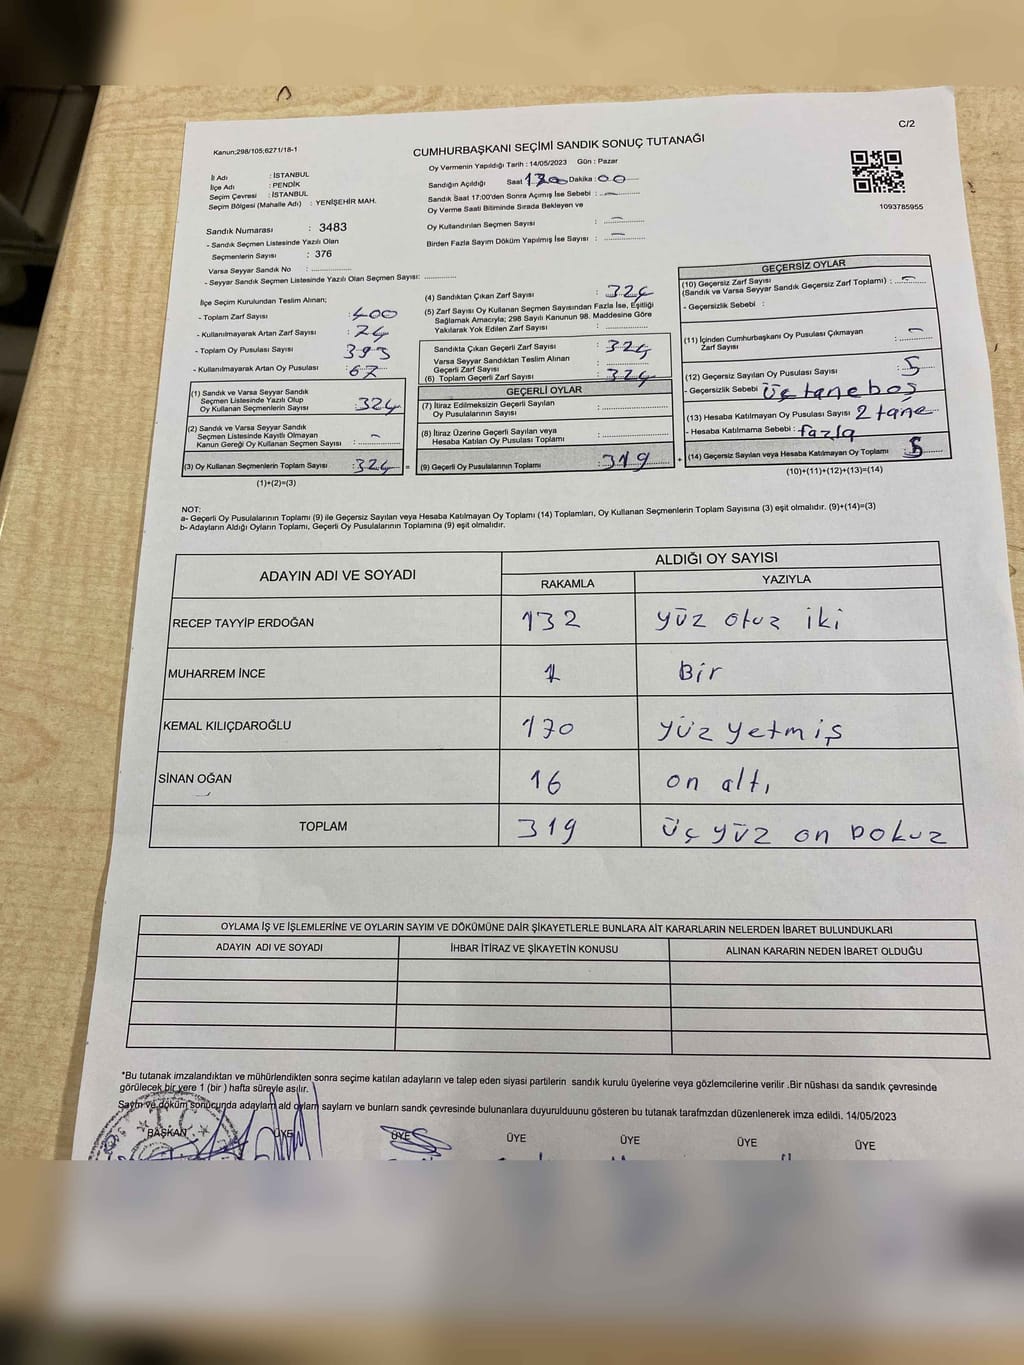 C/2
Kanun;298/105;6271/18-1
CUMHURBAŞKANI SEÇİMİ SANDIK SONUÇ TUTANAĞI
Oy Vermenin Yapıldığı Tarih : 14/05/2023 Gün : Pazar
İl Adı : İSTANBUL
İlçe Adı : PENDİK
Seçim Çevresi : İSTANBUL
Seçim Bölgesi (Mahalle Adı) : YENİŞEHİR MAH.
Sandığın Açıldığı Saat Dakika : 00
Sandık Saat 17:00'den Sonra Açımış İse Sebebi :
Oy Verme Saati Bitiminde Sırada Bekleyen ve
Oy Kullandırılan Seçmen Sayısı :
Birden Fazla Sayım Döküm Yapılmış İse Sayısı :
1093785955
Sandık Numarası : 3483
- Sandık Seçmen Listesinde Yazılı Olan
Seçmenlerin Sayısı : 376
Varsa Seyyar Sandık No :
- Seyyar Sandık Seçmen Listesinde Yazılı Olan Seçmen Sayısı:
İlçe Seçim Kurulundan Teslim Alınan;
- Toplam Zarf Sayısı : 400
- Kullanılmayarak Artan Zarf Sayısı : 74
- Toplam Oy Pusulası Sayısı : 393
- Kullanılmayarak Artan Oy Pusulası : 67
(1) Sandık ve Varsa Seyyar Sandık
Seçmen Listesinde Yazılı Olup
Oy Kullanan Seçmenlerin Sayısı 324
(2) Sandık ve Varsa Seyyar Sandık
Seçmen Listesinde Kayıtlı Olmayan
Kanun Gereği Oy Kullanan Seçmen Sayısı : -
(3) Oy Kullanan Seçmenlerin Toplam Sayısı : 324 =
(1)+(2)=(3)
(4) Sandıktan Çıkan Zarf Sayısı : 324
(5) Zarf Sayısı Oy Kullanan Seçmen Sayısından Fazla İse, Eşitliği
Sağlamak Amacıyla; 298 Sayılı Kanunun 98. Maddesine Göre
Yakılarak Yok Edilen Zarf Sayısı :
Sandıkta Çıkan Geçerli Zarf Sayısı : 324
Varsa Seyyar Sandıktan Teslim Alınan
Geçerli Zarf Sayısı :
(6) Toplam Geçerli Zarf Sayısı : 324
GEÇERLİ OYLAR
(7) İtiraz Edilmeksizin Geçerli Sayılan
Oy Pusulalarının Sayısı :
(8) İtiraz Üzerine Geçerli Sayılan veya
Hesaba Katılan Oy Pusulası Toplamı :
(9) Geçerli Oy Pusulalarının Toplamı : 319 +
GEÇERSİZ OYLAR
(10) Geçersiz Zarf Sayısı
(Sandık ve Varsa Seyyar Sandık Geçersiz Zarf Toplamı) : -
- Geçersizlik Sebebi :
(11) İçinden Cumhurbaşkanı Oy Pusulası Çıkmayan
Zarf Sayısı : -
(12) Geçersiz Sayılan Oy Pusulası Sayısı : 5
- Geçersizlik Sebebi üç tane boş
(13) Hesaba Katılmayan Oy Pusulası Sayısı 2 tane
- Hesaba Katılmama Sebebi : fazla
(14) Geçersiz Sayılan veya Hesaba Katılmayan Oy Toplamı 5
(10)+(11)+(12)+(13)=(14)
NOT:
a- Geçerli Oy Pusulalarının Toplamı (9) ile Geçersiz Sayılan veya Hesaba Katılmayan Oy Toplamı (14) Toplamları, Oy Kullanan Seçmenlerin Toplam Sayısına (3) eşit olmalıdır. (9)+(14)=(3)
b- Adayların Aldığı Oyların Toplamı, Geçerli Oy Pusulalarının Toplamına (9) eşit olmalıdır.
ADAYIN ADI VE SOYADI ALDIĞI OY SAYISI
RAKAMLA YAZIYLA
RECEP TAYYİP ERDOĞAN 132 yüz otuz iki
MUHARREM İNCE 1 Bir
KEMAL KILIÇDAROĞLU 170 yüz yetmiş
SİNAN OĞAN 16 on altı
TOPLAM 319 üç yüz on Dokuz
OYLAMA İŞ VE İŞLEMLERİNE VE OYLARIN SAYIM VE DÖKÜMÜNE DAİR ŞİKAYETLERLE BUNLARA AİT KARARLARIN NELERDEN İBARET BULUNDUKLARI
ADAYIN ADI VE SOYADI İHBAR İTİRAZ VE ŞİKAYETİN KONUSU ALINAN KARARIN NEDEN İBARET OLDUĞU
*Bu tutanak imzalandıktan ve mühürlendikten sonra seçime katılan adayların ve talep eden siyasi partilerin sandık kurulu üyelerine veya gözlemcilerine verilir .Bir nüshası da sandık çevresinde
görülecek bir yere 1 (bir ) hafta süreyle asılır.
Sayım ve döküm sonucunda adayların ald oyların sayları ve bunların sandk çevresinde bulunanlara duyurulduunu gösteren bu tutanak tarafmzdan düzenlenerek imza edildi. 14/05/2023
BAŞKAN ÜYE ÜYE ÜYE ÜYE ÜYE ÜYE
T.C.